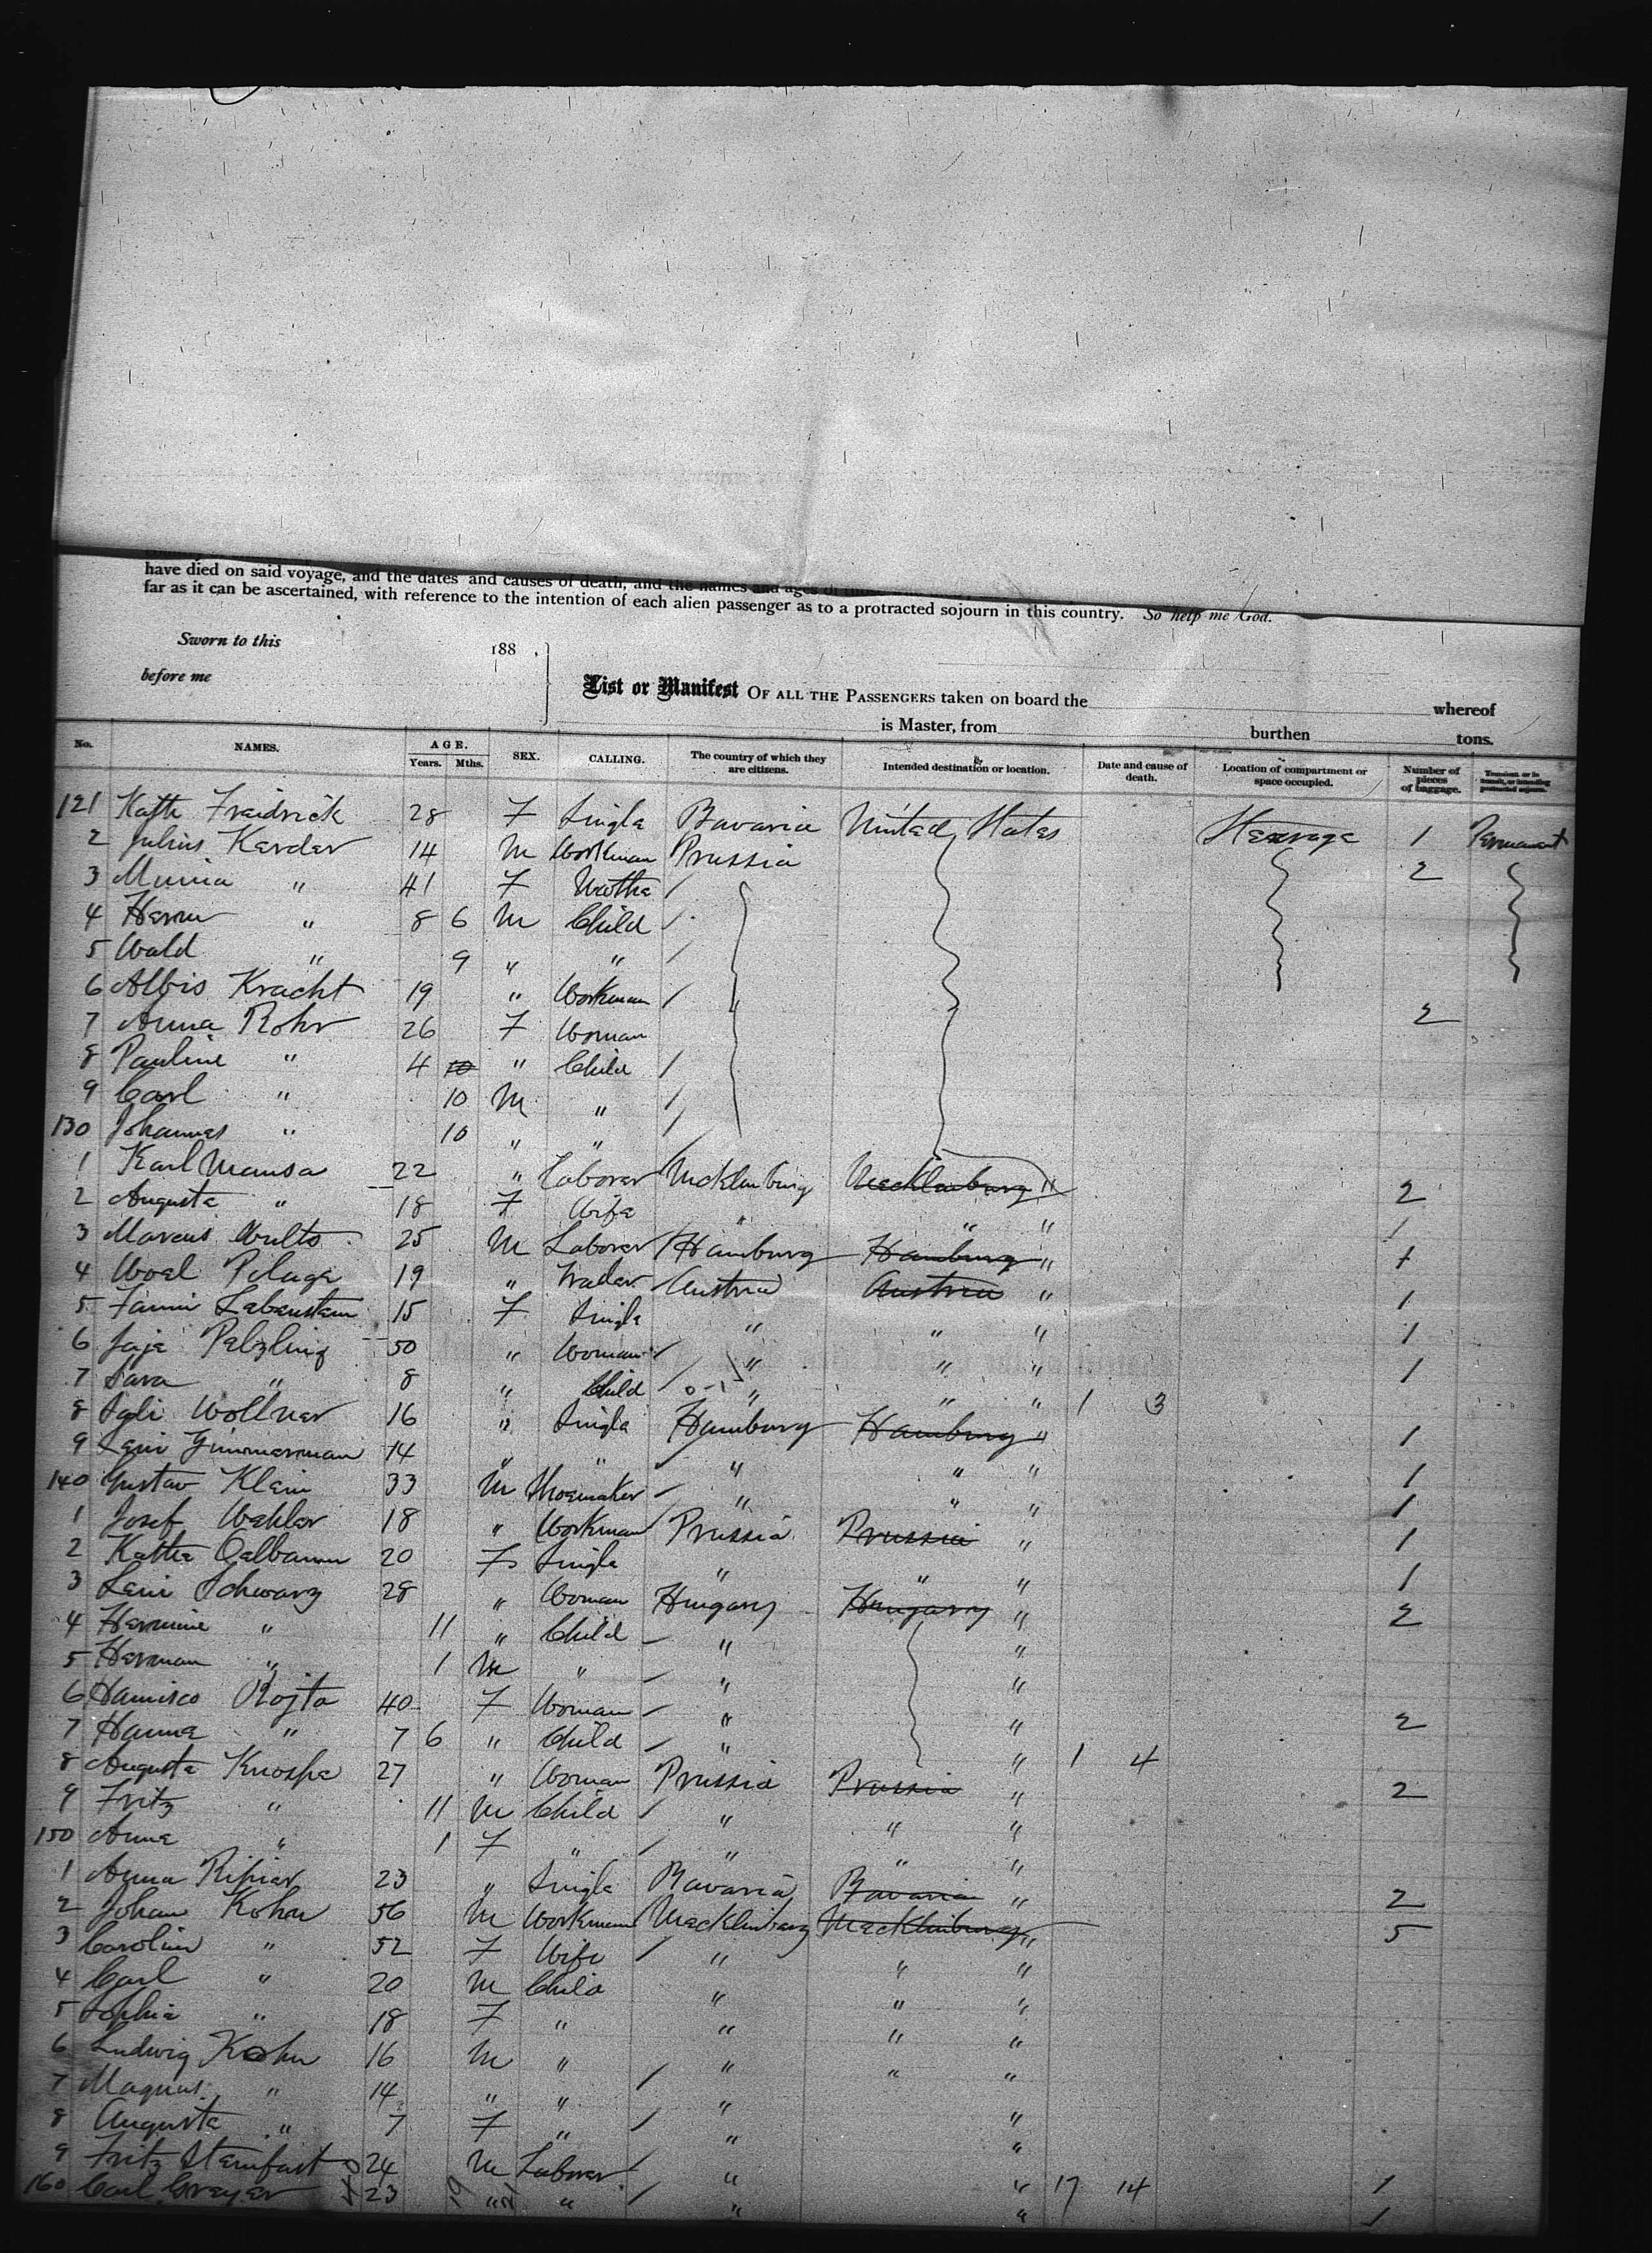 have died on said voyage, and the dates and causes of death, and the names and ages of
far as it can be ascertained, with reference to the intention of each alien passenger as to a protracted sojourn in this country. So help me God.
Sworn to this 188 .
before me
List or Manifest OF ALL THE PASSENGERS taken on board the whereof
is Master, from burthen tons.
No. NAMES. AGE. Years. Mths. SEX. CALLING. The country of which they are citizens. Intended destination or location. Date and cause of death. Location of compartment or space occupied. Number of pieces of baggage. Transient or in transit, or intending protracted sojourn.
121 Kathe Fraidrick 28 F Single Bavaria United States Steerage 1 Permanent
2 Julius Kerder 14 M Workman Prussia 2
3 Minna " 41 F Mothe
4 Herm " 8 6 M Child
5 Wald " 9 " "
6 Albis Kracht 19 " Workman 2
7 Anna Rohr 26 F Woman
8 Pauline " 4 10 " Child
9 Carl " 10 M "
130 Johannes " 10 " "
1 Karl Mansa 22 " Laborer Mcklenburg Mecklenburg " 2
2 Augusta " 18 F Wife " " " 1
3 Marcus Wults 25 M Laborer Hamburg Hamburg " 1
4 Woel Pelage 19 " Trader Austria Austria " 1
5 Fanni Labenstein 15 F Single " " " 1
6 Jaje Pelzling 50 " Woman " " " 1
7 Sara " 8 " Child 0-1 " " " 1 3
8 Sali Wollner 16 " Single Hamburg Hamburg " 1
9 Leni Zimmerman 14 " " " " " 1
140 Gustav Klein 33 M Shoemaker " " " 1
1 Josef Wehler 18 " Workman Prussia Prussia " 1
2 Kathe Oelbaum 20 F Single " " " 1
3 Leni Schwarz 28 " Woman Hungary Hungary " 2
4 Hermine " 11 " Child " "
5 Herman " 1 M " " "
6 Hanisco Rojta 40 F Woman " " 2
7 Hanna " 7 6 " Child " " 1 4
8 Augusta Knospe 27 " Woman Prussia Prussia " 2
9 Fritz " 11 M Child " " "
150 Anna " 1 F " " " "
1 Anna Ripier 23 " Single Bavaria Bavaria " 2
2 Johan Kohn 56 M Workman Mecklenburg Mecklenburg " 5
3 Carolin " 52 F Wife " " "
4 Carl " 20 M Child " " "
5 Sophia " 18 F " " " "
6 Ludwig Kohn 16 M " " " "
7 Magnus " 14 " " " "
8 Augusta " 7 F " " "
9 Fritz Steinfart 24 M Laborer " " 17 14 1
160 Carl Greyer 23 " " " " 1